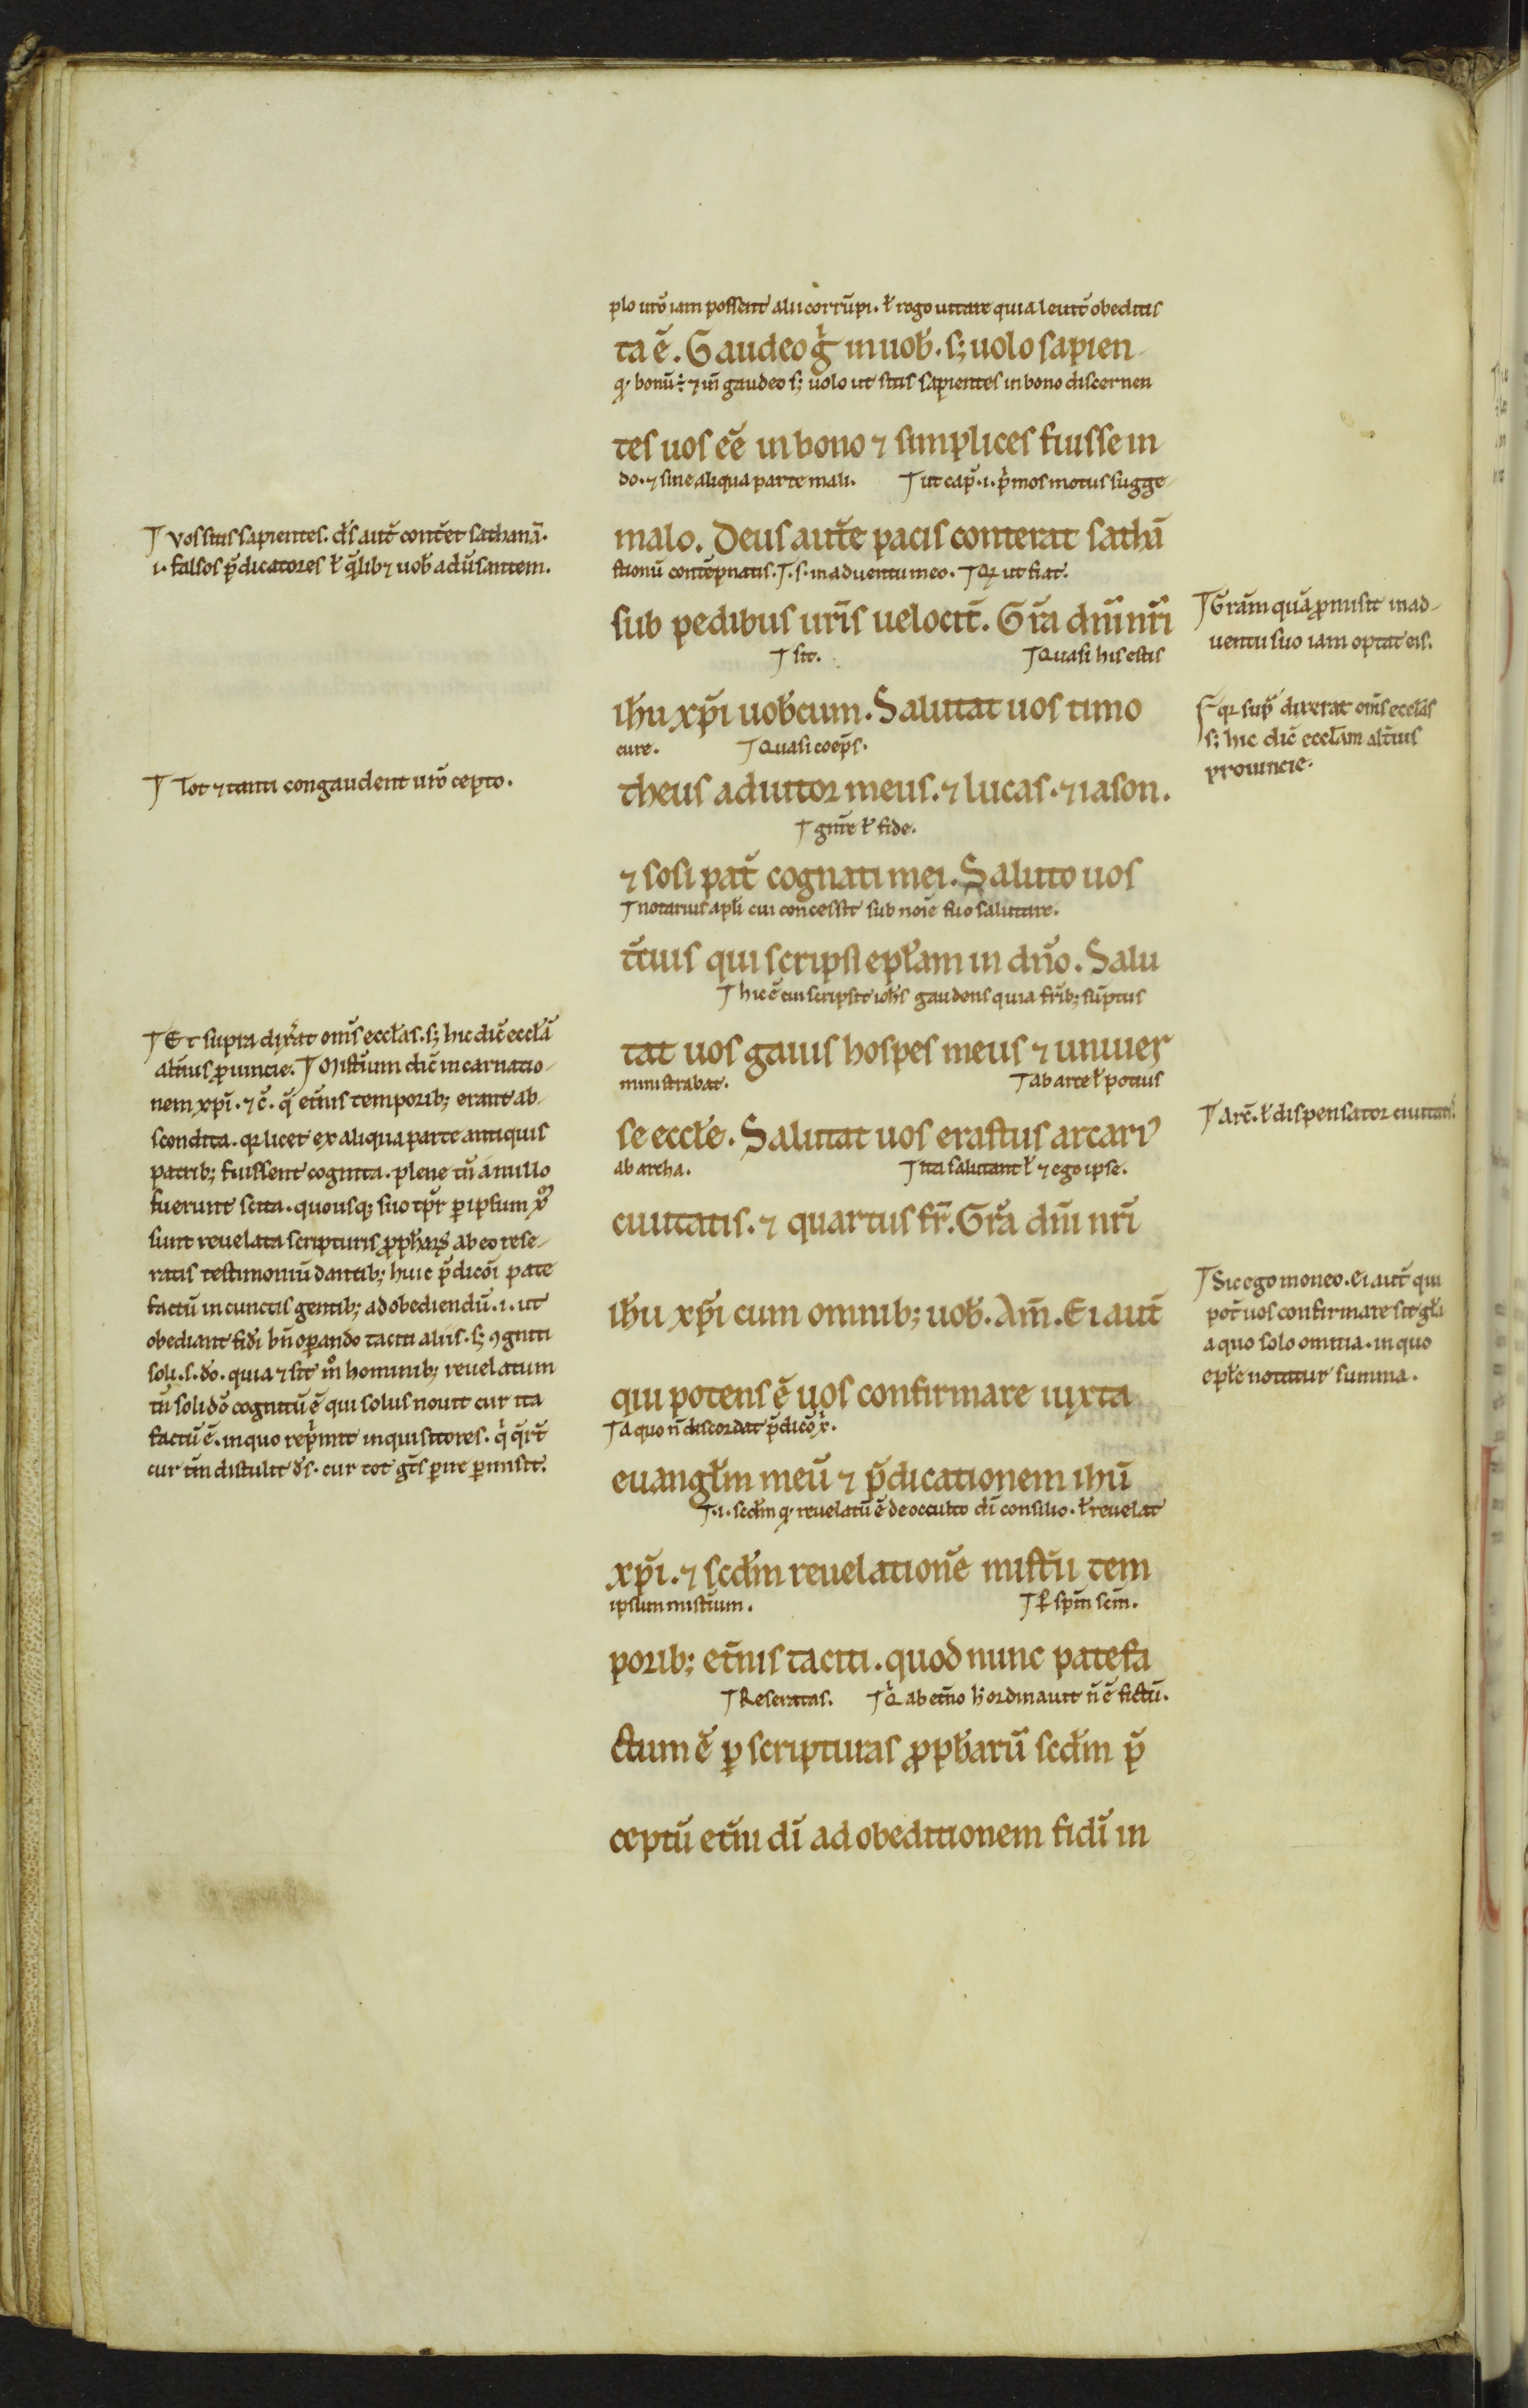 plo ur̄o iam possent alii corrūpi. ł rogo uitare quia leuit̄ obeditis
ta ē. Gaudeo g̊ in uob̄. s; uolo sapien
q; bonū ÷ ⁊ in̄ gaudeo s; uolo ut sitis sapientes in bono discernen
tes uos eē in bono ⁊ simplices fuisse in
do. ⁊ sine aliqua parte mali. ut cap̄. i. p̄mos motus sugge
malo. Deus aut̄e pacis conterat sathā
stionū contēpnatis. s. in aduentu meo. Qr ut fiat.
sub pedibus ur̄is uelocit̄. Gr̄a dn̄i nr̄i
sit. Quasi his estis
ih̄u xp̄i uob̄cum. Salutat uos timo
cure. Quasi coep̄s.
theus adiutor meus. ⁊ lucas. ⁊ iason.
gn̄re ł fide.
⁊ sosipat̄ cognati mei. Saluto uos
notarius apłi cui concessit sub noīe suo salutare.
t̄cius qui scripsi epłam in dn̄o. Salu
hic ē cui scripsit ioh̄s gaudens quia fr̄ib; sūptus
tat uos gaius hospes meus ⁊ uniuer
ministrabat. ab arce ł potius
se eccłe. Salutat uos erastus arcari⁹
ab archa. ita salutant ł ⁊ ego ipse.
ciuitatis. ⁊ quartus fr̄. Gr̄a dn̄i nr̄i
ih̄u xp̄i cum omnib; uob̄. Am̄. Ei aut̄
qui potens ē uos confirmare iuxta
A quo n̄ discordat p̄dicō x̄.
euangłm meū ⁊ p̄dicationem ih̄ū
.i. scd̄m q; reuelatū ē de occulto dī consilio. ł reuelat
xp̄i. ⁊ scd̄m reuelationē mist̄ii tem
ipsum mist̄ium. ꝑ sp̄m scm̄.
porib; et̄nis taciti. quod nunc patefa
Reseratas. Q̊ ab et̄no h̄ ordinauit n̄ ē fictū.
ctum ē ꝑ scripturas ꝓph̄arū scd̄m p̄
ceptū et̄ni dī ad obeditionem fidī in
Vos sitis sapientes. d̄s aut̄ cont̄et sathanā.
i. falsos p̄dicatores ł q̄lib; ⁊ uob̄ adūsantem.
Tot ⁊ tanti congaudent ur̄o cepto.
Et supra dix̄at om̄s eccłas. s; hic dic̄ eccłā
alt̄ius ꝓuincie. Mist̄ium dic̄ incarnatio
nem xp̄i. ⁊ c̄. q̄ et̄nis temporib; erant ab
scondita. qr licet ex aliqua parte antiquis
patrib; fuissent cognita. plene tn̄ a nullo
fuerunt scita. quousq; suo tp̄r ꝑ ipsum x̄
sunt reuelata scripturis ꝓph̄arum ab eo rese
ratis testimoniū dantib; huic p̄dicōi pate
factū in cunctis gentib; ad obediendū. i. ut
obediant fidī bn̄ oꝑando taciti aliis. s; ꝯgniti
soli. s. dō. quia ⁊ sit m̊ hominib; reuelatum
tn̄ soli dō cognitū ē qui solus nouit cur ita
factū ē. in quo rep̄mit inquisitores. q̊ q̄rt̄
cur tm̄ distulit d̄s. cur tot gēs ꝑire ꝑmisit.
Gr̄am quā ꝓmisit in ad
uentu suo iam optat eis.
qr sup̄ dixerat om̄s eccłas
s; hic dic̄ eccłam alt̄ius
prouincie.
Arc̄. ł dispensator ciuitatis.
Sic ego moneo. Ei aut̄ qui
pot̄ uos confirmare sit głi
a quo solo omnia. in quo
epłe notatur summa.